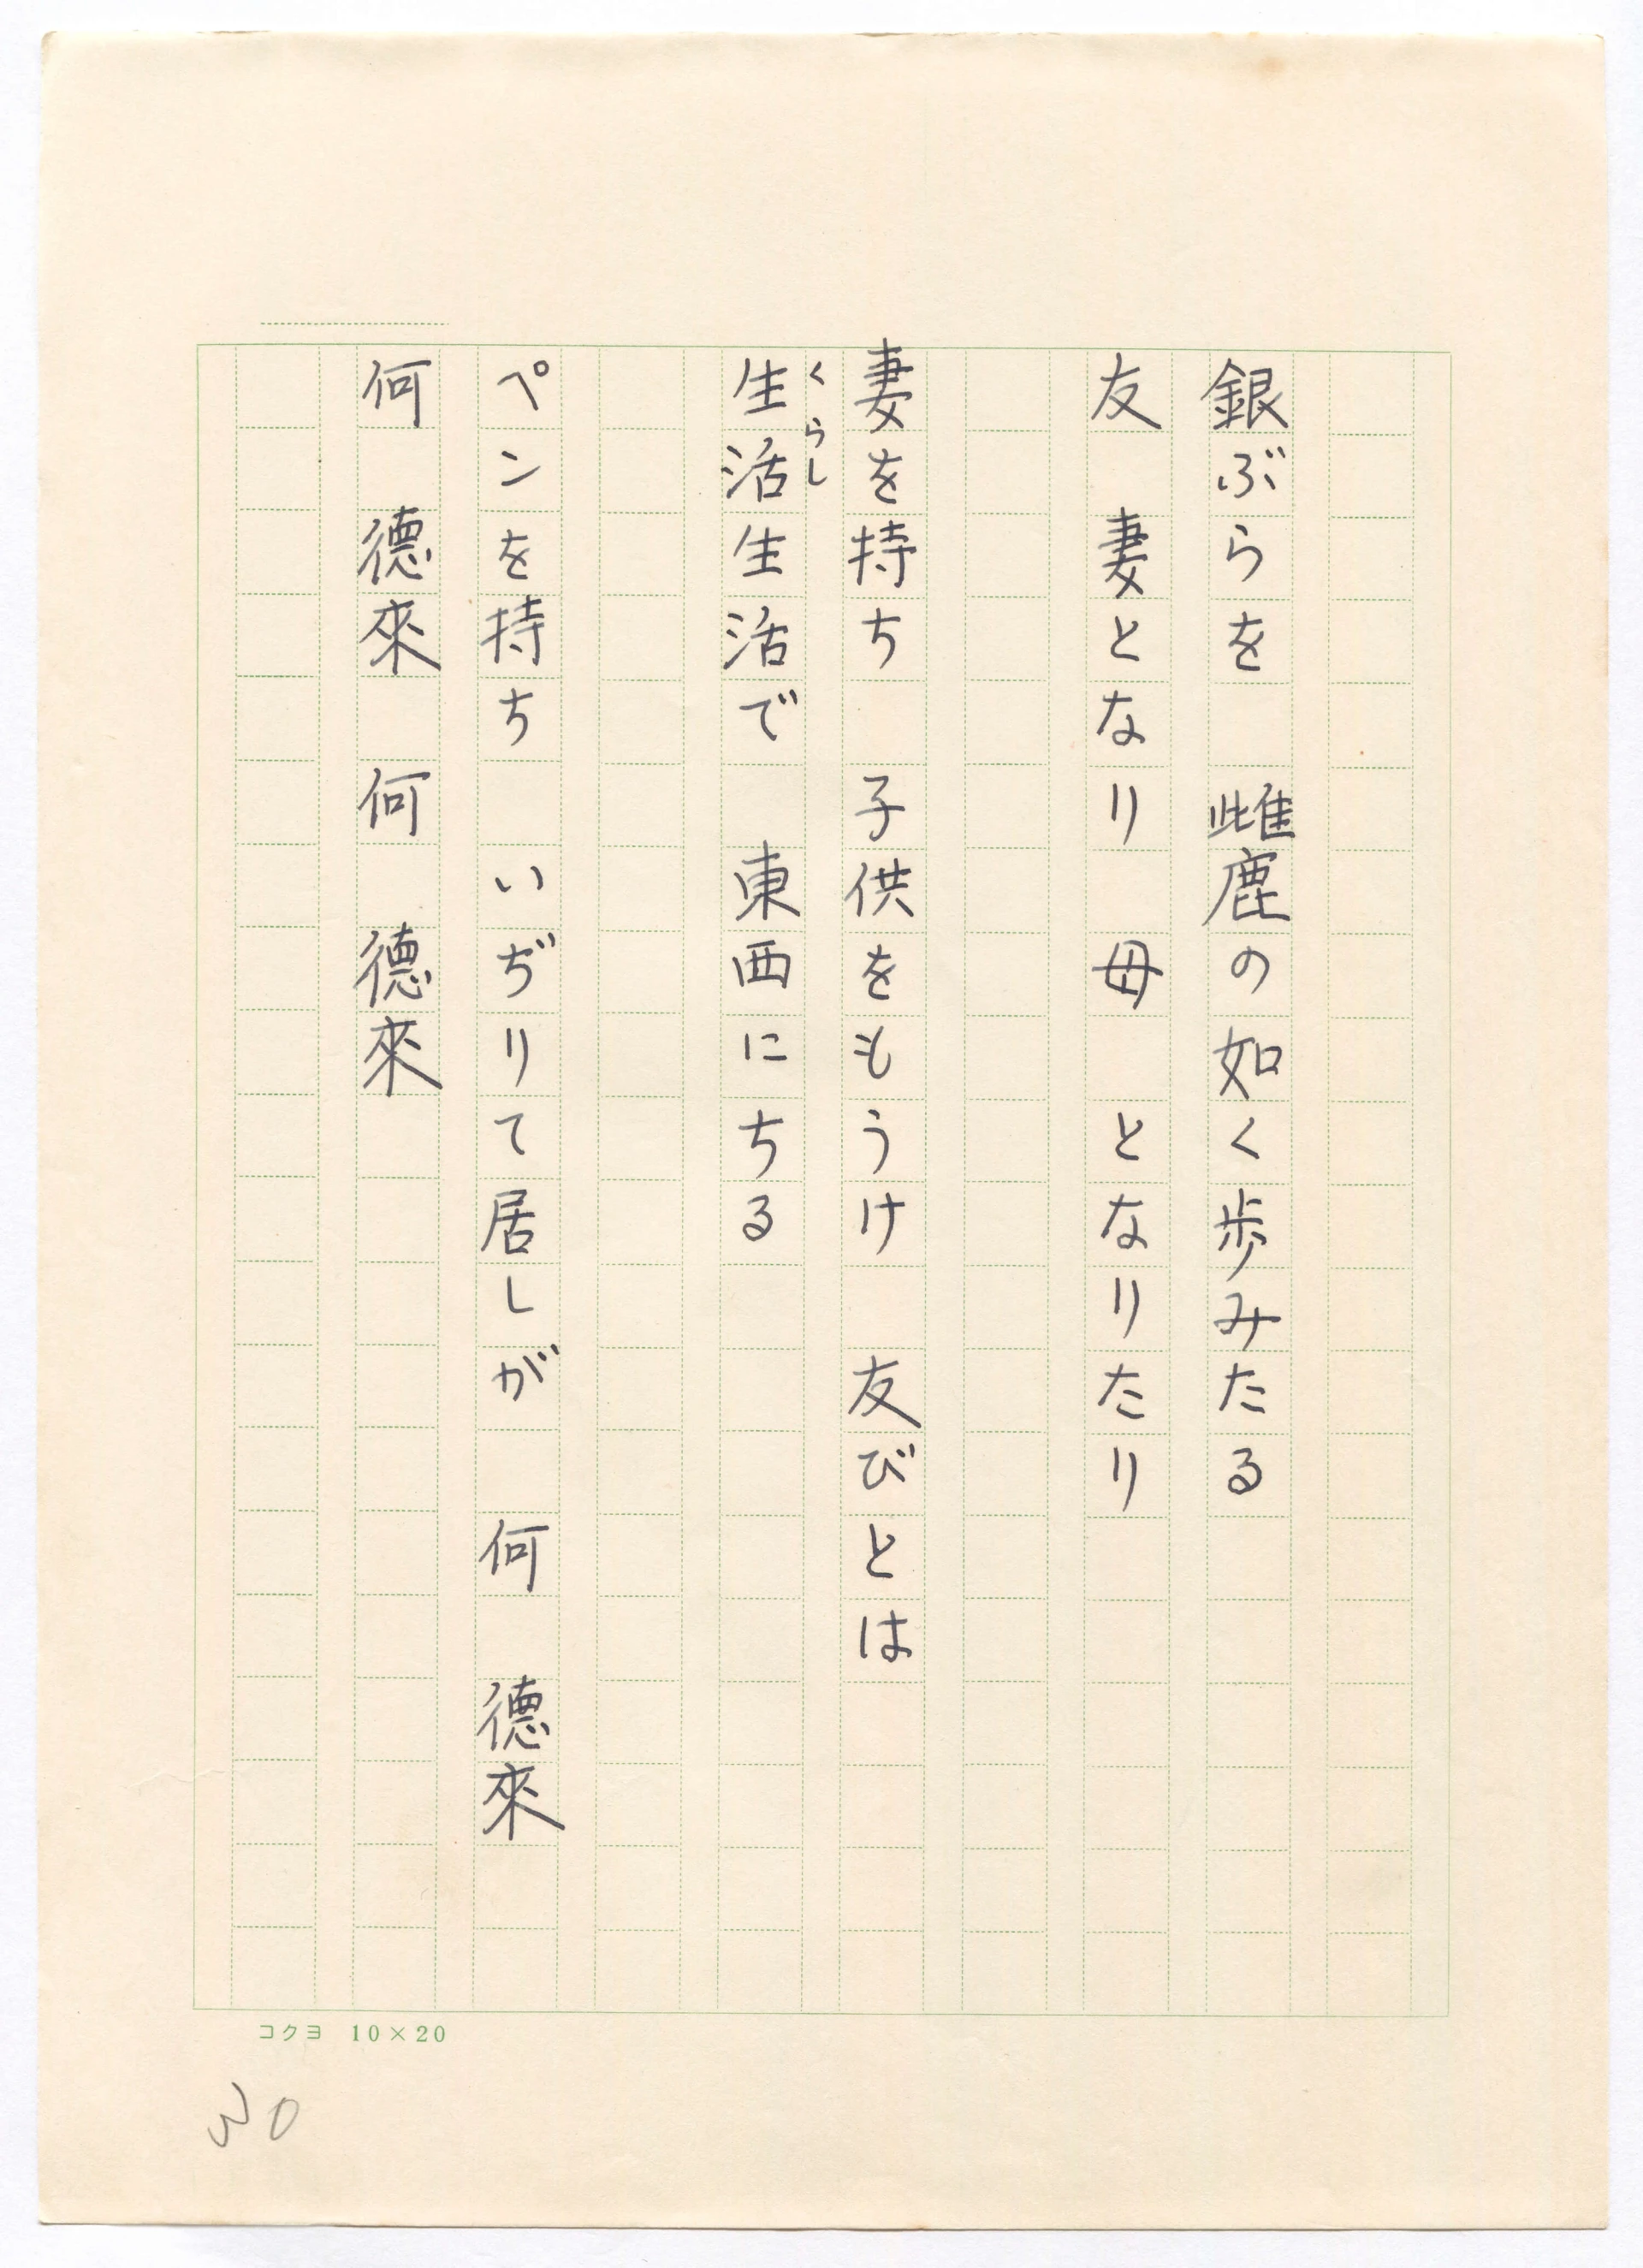 銀ぶらを　雌鹿の如く歩みたる
友　妻となり　母　となりたり
妻を持ち　子供をもうけ　友びとは
くらし
生活生活で　東西にちる
ペンを持ち　いぢりて居しが　何　德來
何　德來　何　德來
コクヨ 10×20
30